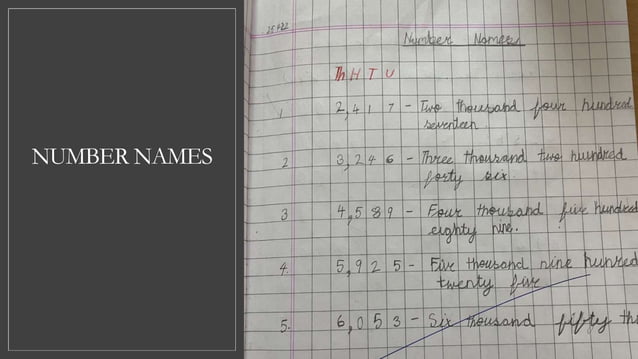 NUMBER NAMES
25.4.22
Number Names
Th H T U
1 2,417 - Two thousand four hundred
seventeen
2 3,246 - Three thousand two hundred
forty six.
3 4,589 - Four thousand five hundred
eighty nine.
4. 5,925 - Five thousand nine hunred
twenty five
5. 6,053 - Six thousand fifty th